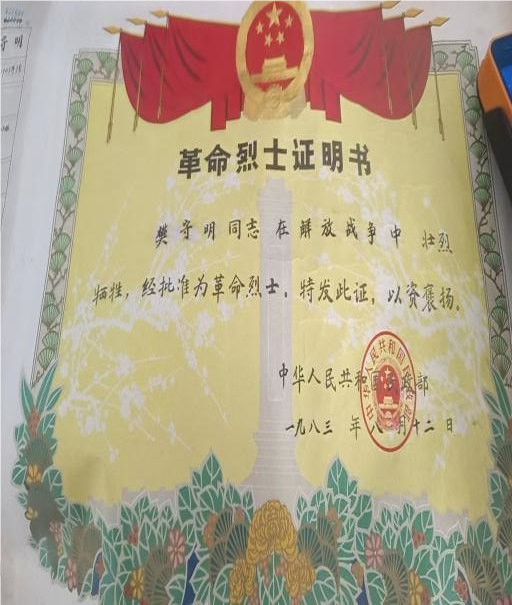 革命烈士证明书
樊守明同志在解放战争中壮烈
牺牲，经批准为革命烈士。特发此证，以资褒扬。
中华人民共和国民政部
一九八三年八月十二日